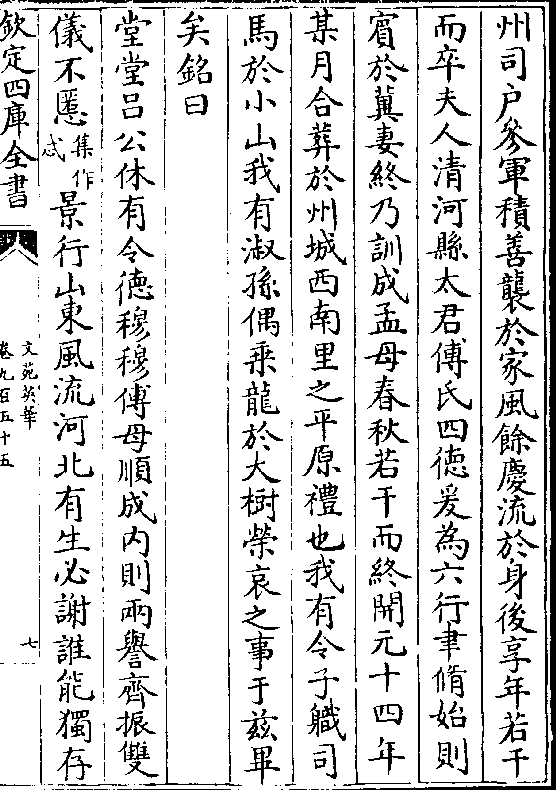 州司户叅軍積善襲於家風餘慶流於身後享年若干
而卒夫人清河縣太君傅氏四徳爰為六行聿脩始則
賔於冀妻終乃訓成孟母春秋若干而終開元十四年
某月合葬於州城西南里之平原禮也我有令子軄司
馬於小山我有淑孫偶乗龍於大樹榮哀之事于兹畢
矣銘曰
堂堂吕公休有令徳穆穆傅母順成内則兩譽齊振雙
儀不慝集作忒景行山東風流河北有生必謝誰能獨存
欽定四庫全書
文苑英華
卷九百五十五
七